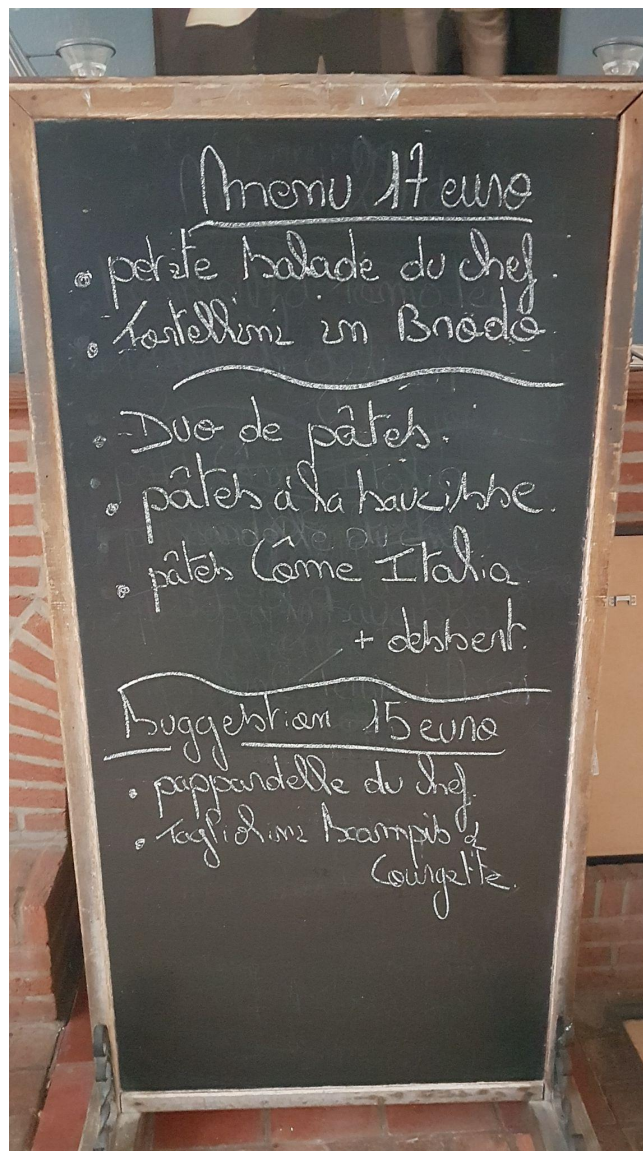 Menu 17 euro
• petite salade du chef.
• Tortellini in Brodo
• Duo de pâtes.
• pâtes à la saucisse.
• pâtes Côme Italia
+ dessert.
Suggestion 15 euro
• pappardelle du chef
• Tagliolini Scampis &
Courgette.